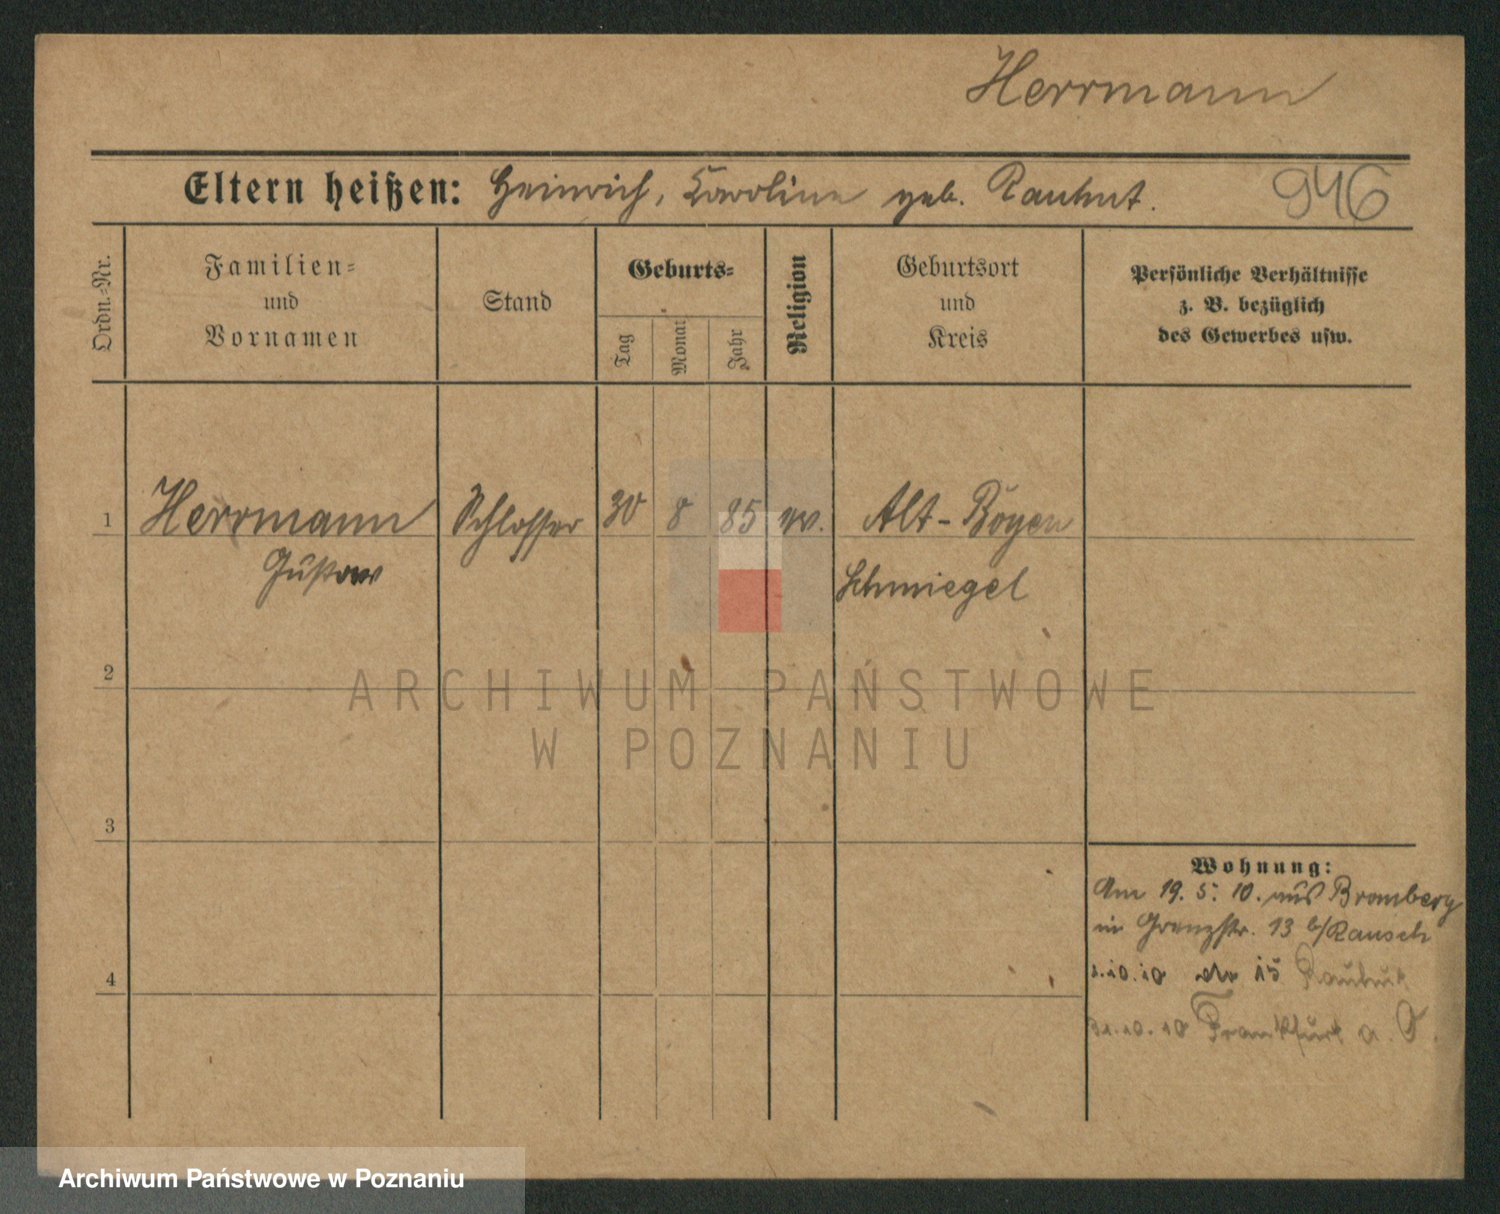 Herrmann
Eltern heißen: Heinrich, Caroline geb. Rauhut.
946
Ordn.-Nr.
Familien-
und
Vornamen
Stand
Geburts-
Tag
Monat
Jahr
Religion
Geburtsort
und
Kreis
Persönliche Verhältnisse
z. B. bezüglich
des Gewerbes usw.
1 Herrmann Schlosser 30 8 85 ev. Alt-Boyen
Gustav Schmiegel
2
ARCHIWUM PAŃSTWOWE
W POZNANIU
3
Wohnung:
Am 19. 5. 10. aus Bromberg
in Grenzstr. 13 b/Rausch
1.10.10 15 Rauhut
4
10.10 Frankfurt a. O.
Archiwum Państwowe w Poznaniu